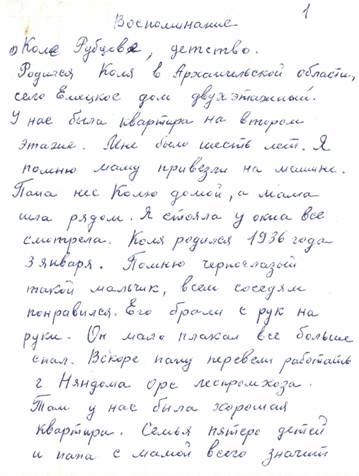 1
Воспоминание
о Коле Рубцове, детство.
Родился Коля в Архангельской области,
село Емецкое дом двухэтажный.
У нас была квартира на втором
этаже. Мне было шесть лет. Я
помню маму привезли на машине.
Папа нес Колю домой, а мама
шла рядом. Я стояла у окна все
смотрела. Коля родился 1936 года
3 января. Помню черноглазый
такой мальчик, всем соседям
понравился. Его брали с рук на
руки. Он мало плакал все больше
спал. Вскоре папу перевели работать
г Няндома орс леспромхоза.
Там у нас была хорошая
квартира. Семья пятеро детей
и папа с мамой всего значит